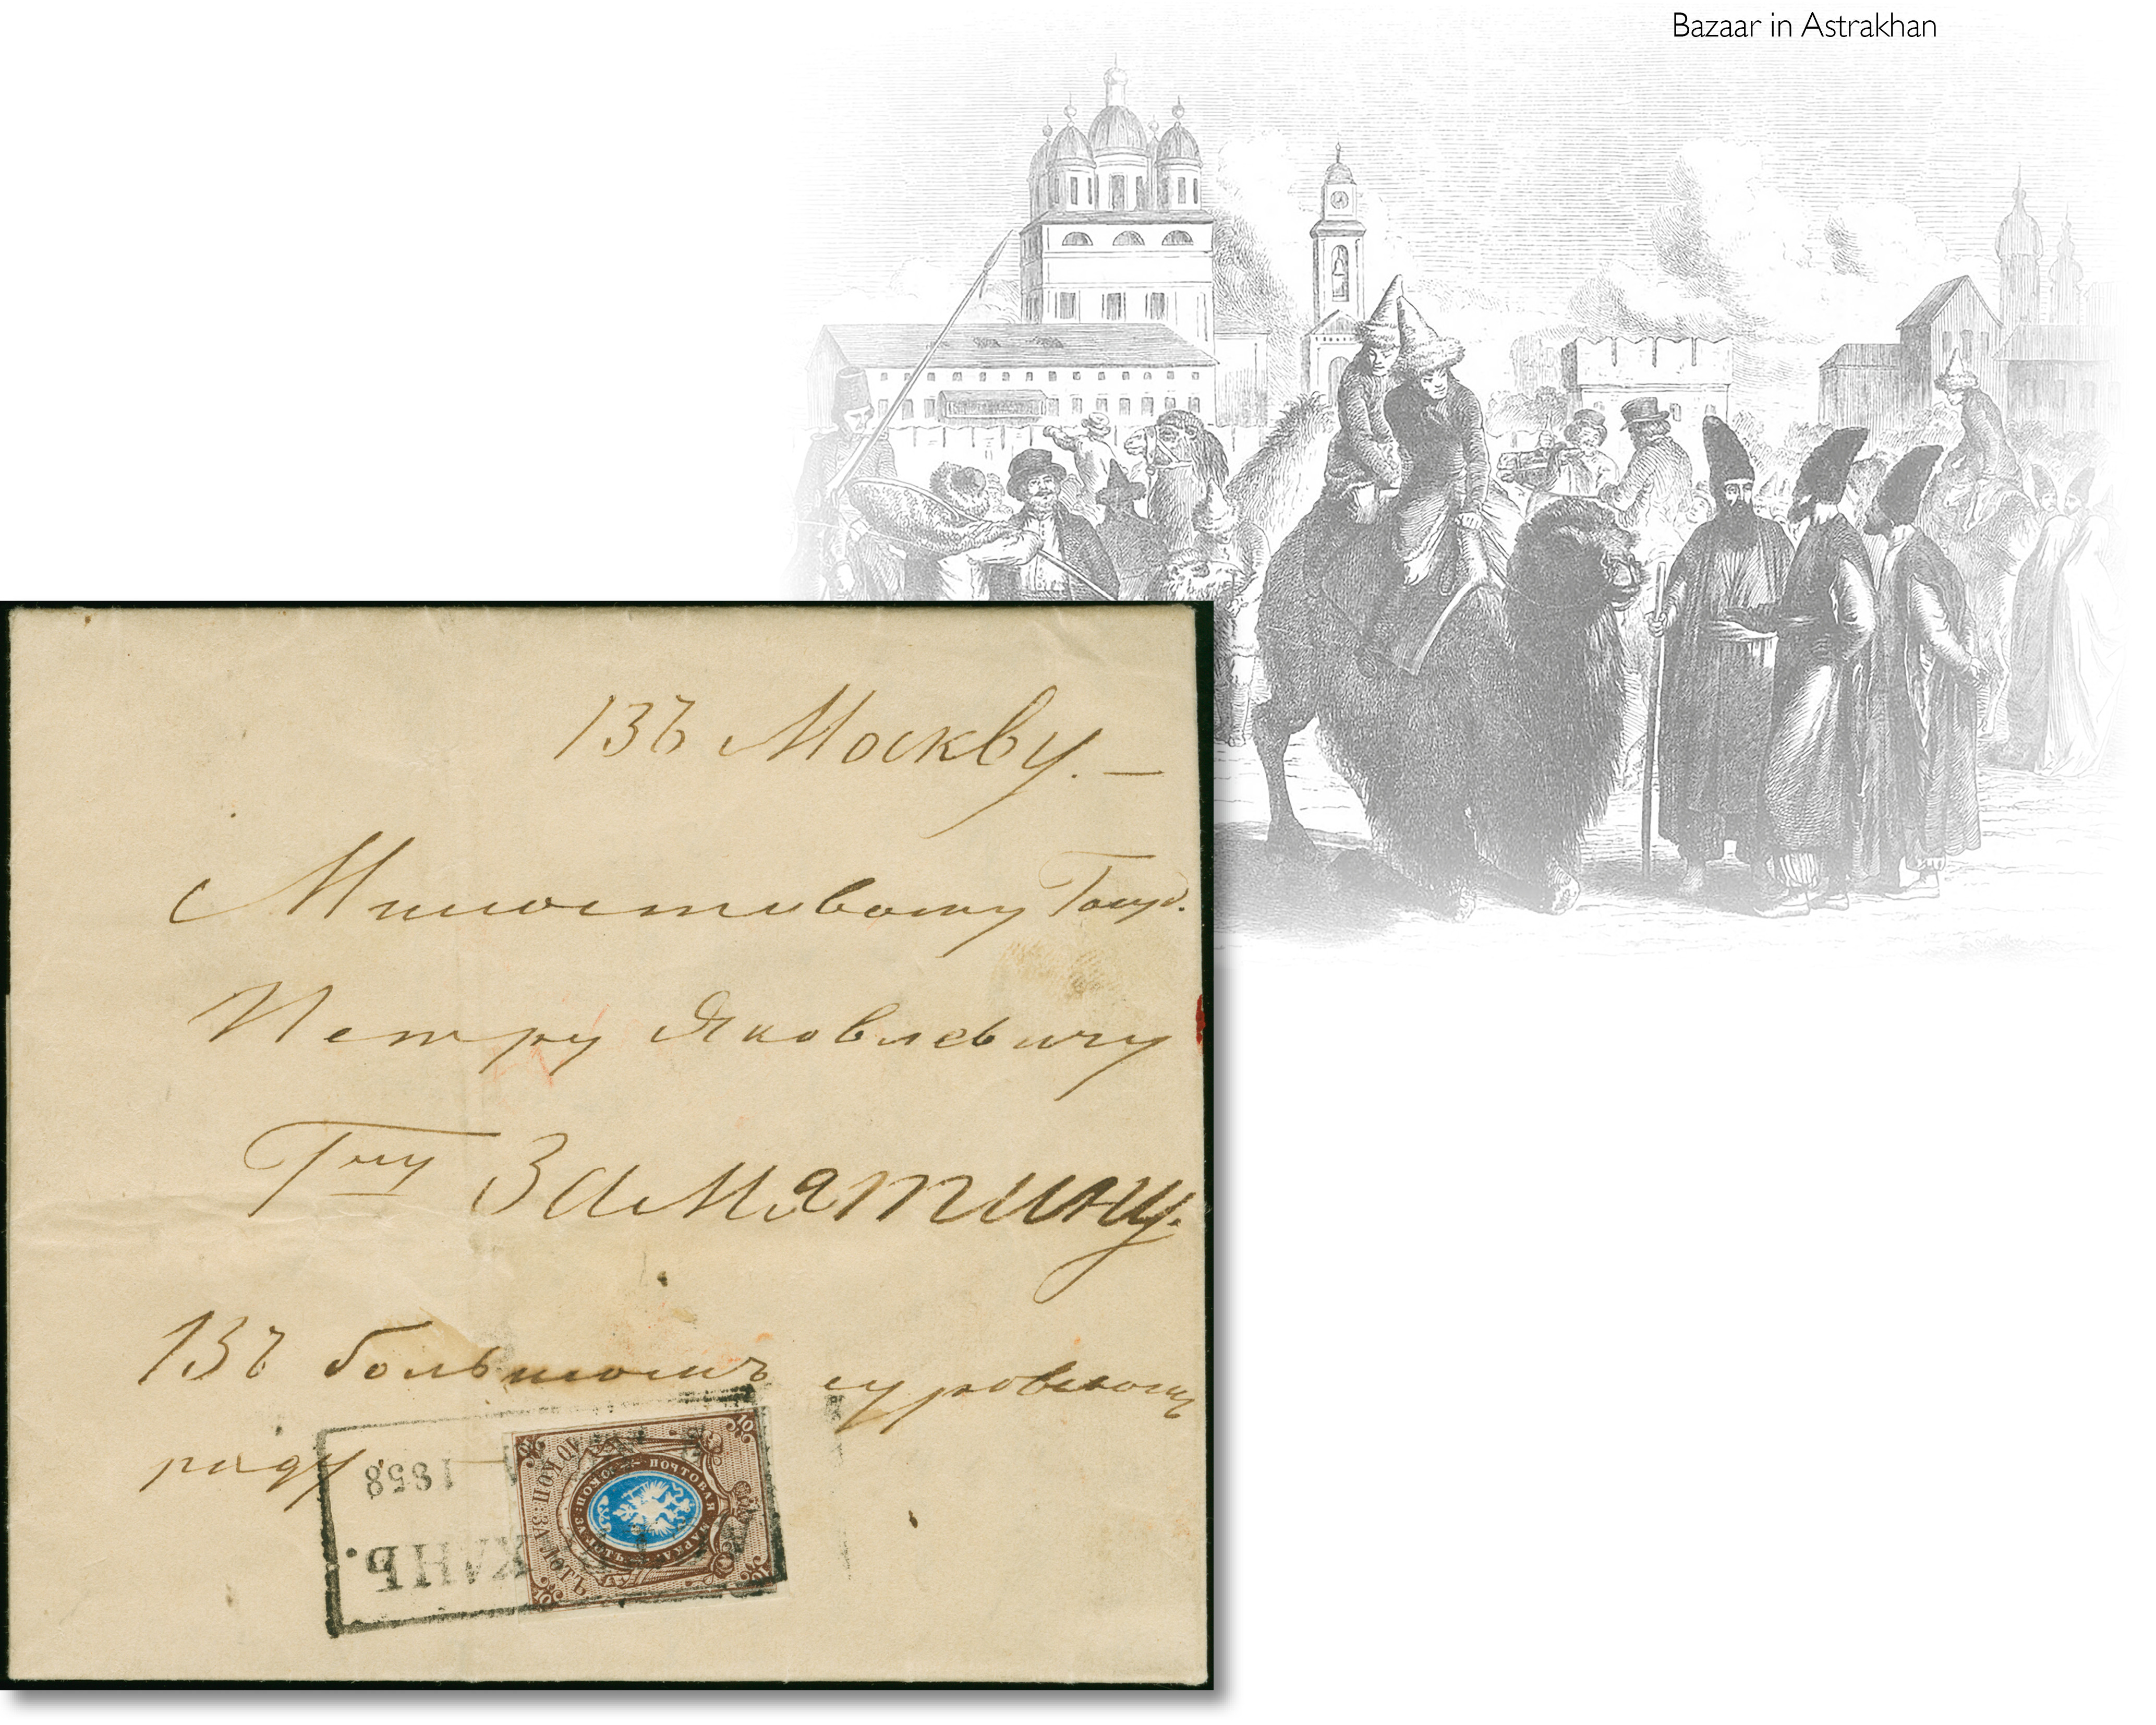 Bazaar in Astrakhan
Въ Москву. —
Милостивому Госуд.
Петру Яковлевичу
Гну Замятину.
Въ большомъ суровскомъ
ряду —
1858
КАНЬ.
10 КОП: ЗА ЛОТЪ
ПОЧТОВАЯ МАРКА
10 КОП: ЗА ЛОТЪ
10
10
10
10